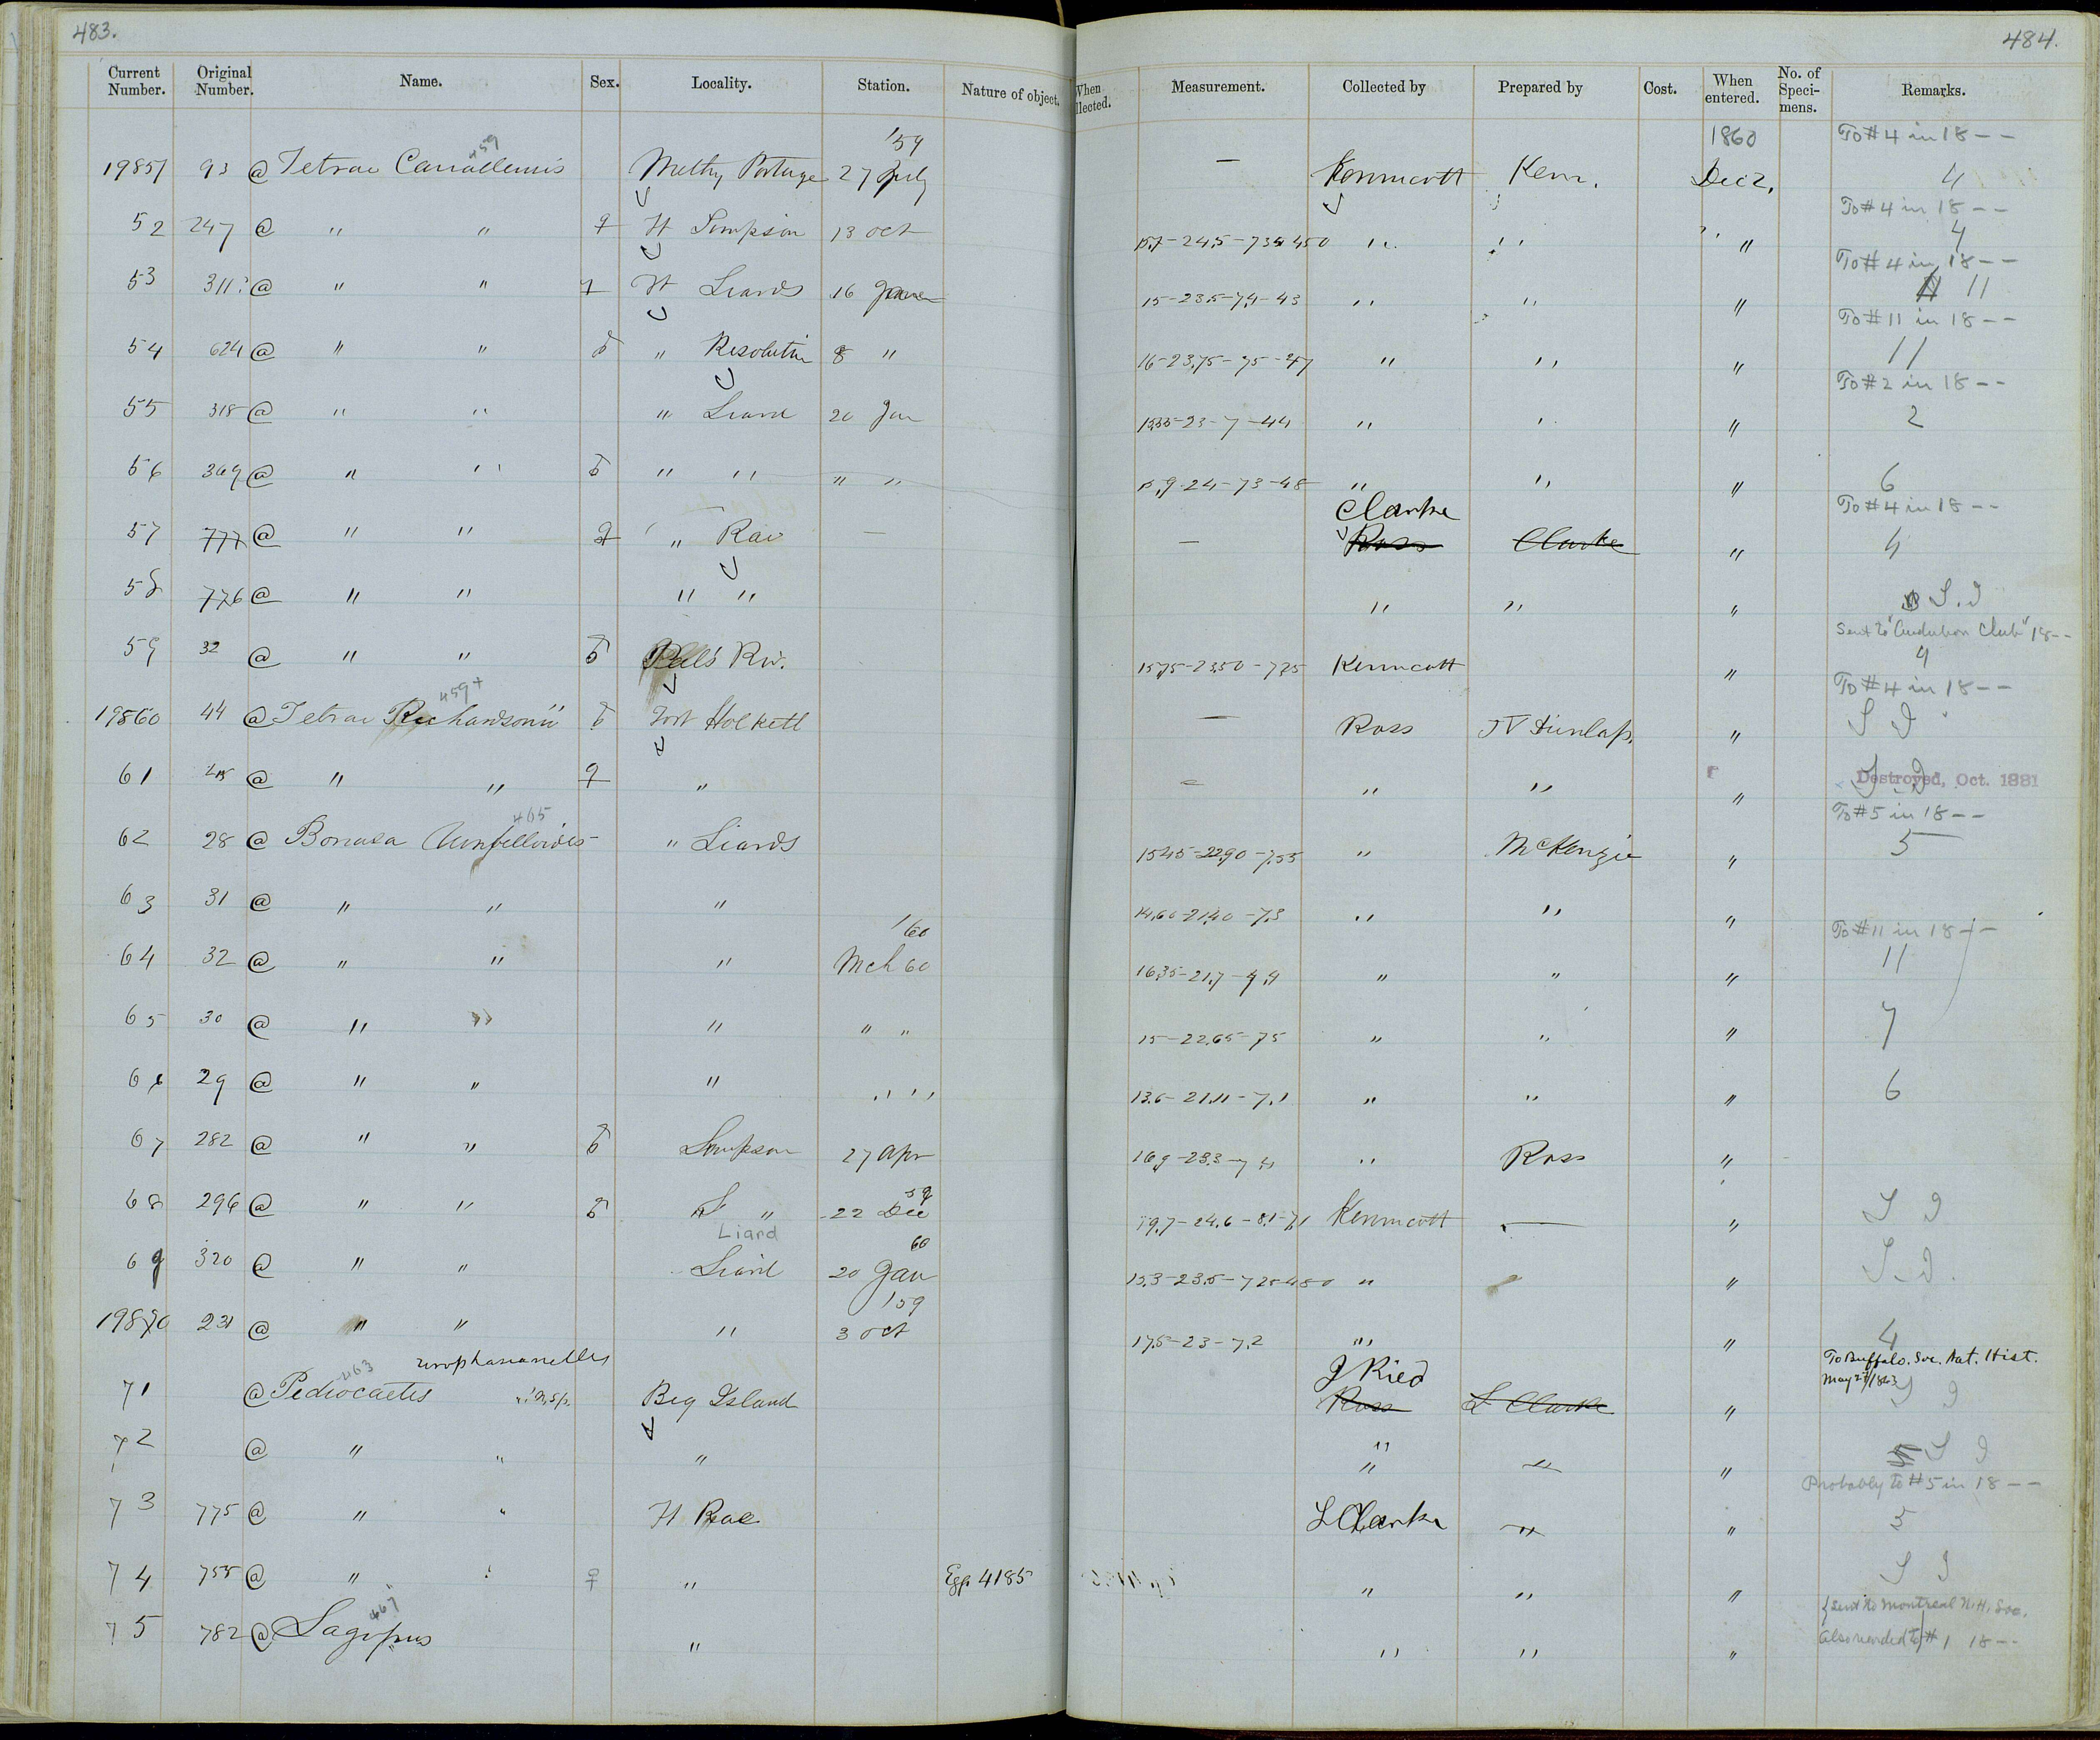 483.
484.
Current Number. Original Number. Name. Sex. Locality. Station. Nature of object. When llected. Measurement. Collected by Prepared by Cost. When entered. No. of Speci- mens. Remarks.
'59 1860 To #4 in 18 --
19851 93 @ Tetrao Canadensis 459 Methy Portage 27 July — Kennicott Kenn. Dec 2, 4
To #4 in 18 --
52 247 @ " " ♀ Ft Simpson 13 Oct " " " 4
To #4 in 18 --
53 311? @ " " ♀ Ft Liards 16 15-23.5-7.4-43 " " " 11
To #11 in 18 --
54 624 @ " " ♂ " Resolution 8 " 16-23.75-75-47 " " " 11
To #2 in 18 --
55 318 @ " " " Liard 20 Jan " " " 2
56 309 @ " " ♂ " " " " 15.9-24-73-48 " " " 6
Clarke To #4 in 18 --
57 777 @ " " ♀ " Rae — — Ross Clarke " 4
58 776 @ " " " " " " " S.I
Sent to "Audubon Club" 18--
59 32 @ " " ♂ Peel's Riv. 15.75-23.50-7.25 Kennicott " 4
To #4 in 18 --
19860 44 @ Tetrao Richardsonii 459+ ♂ Fort Holkett — Ross J T Dunlap. " S I
61 45 @ " " ♀ " — " " " S I Destroyed, Oct. 1881
To #5 in 18 --
62 28 @ Bonasa Umbelloides 465 " Liards 15.45-22.90-7.55 " McKenzie " 5
63 31 @ " " " 14.60-21.40-7.3 " " "
'60 To #11 in 18 --
64 32 @ " " " Mch 60 16.35-21.7- " " " 11
65 30 @ " " " " " 15-22.65-75 " " " 7
66 29 @ " " " " " 13.6-21.11-7.1 " " " 6
67 282 @ " " ♂ Simpson 27 Apr " Ross "
59
68 296 @ " " ♂ " 22 Dec 19.7-24.6-8.1-7.1 Kennicott — " S I
Liard 60
69 320 @ " " Liard 20 Jan 15.3-23.5-725-480 " " S. I.
'59
19870 231 @ " " " 3 Oct 17.5-23-7.2 " " 4
463 urophasianellus J Ried To Buffalo. Soc. Nat. Hist.
May 27/1863
71 @ Pediocaetes Big Island Ross L Clarke " S I
72 @ " " " " " " " S I
Probably to #5 in 18 --
73 775 @ " " Ft Rae L Clarke " " 5
74 755 @ " " ♀ " Egg. 4185 " " " S I
{Sent to Montreal N.H. Soc.
75 782 @ Lagopus 467 " " " " Also recorded to #1 18 --